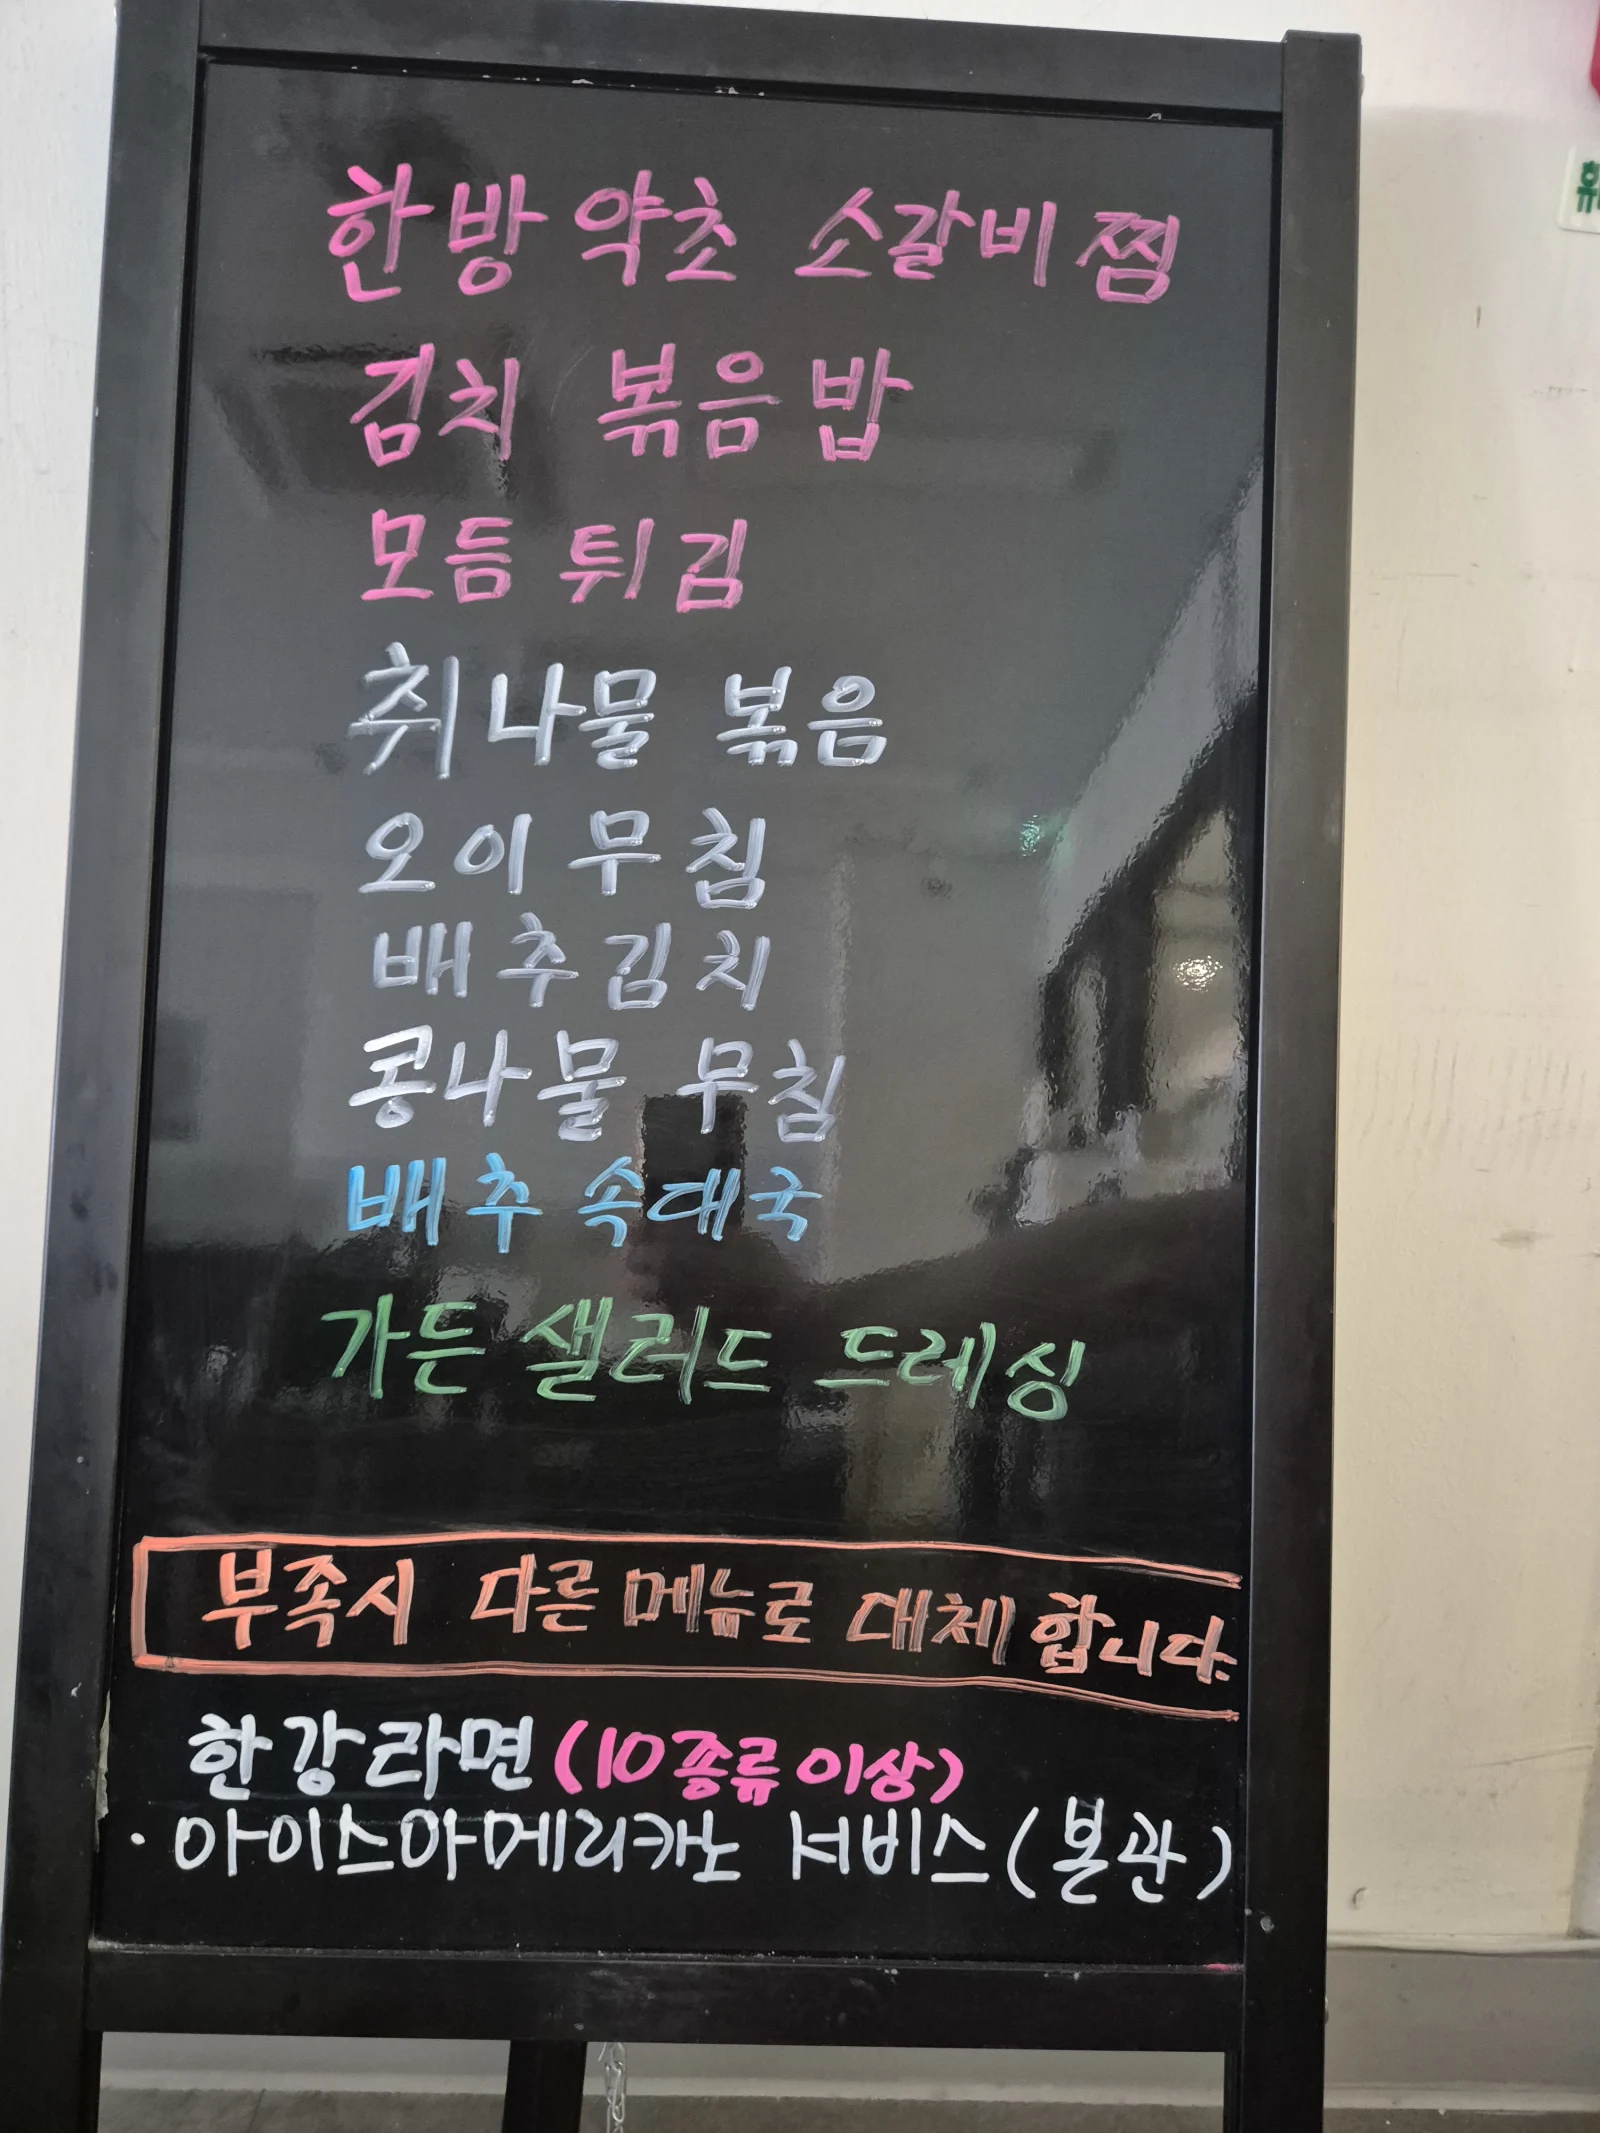 한방약초 소갈비찜
김치 볶음밥
모듬 튀김
취나물 볶음
오이 무침
배추김치
콩나물 무침
배추 속대국
가든 샐러드 드레싱
부족시 다른 메뉴로 대체 합니다.
한강라면 (10종류 이상)
· 아이스아메리카노 서비스 (본관)